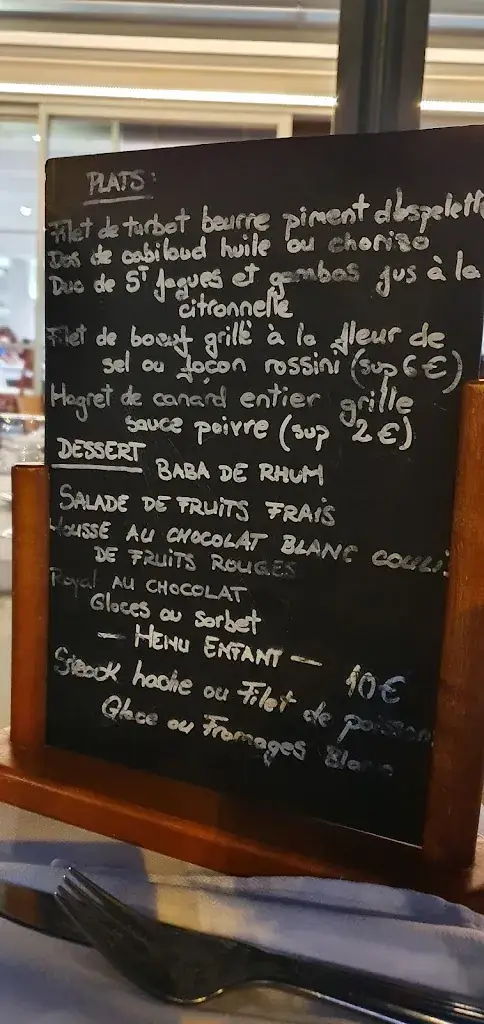 PLATS:
Filet de turbot beurre piment d'espelette
Dos de cabillaud huile ou chorizo
Duo de St Jaques et gambas jus à la
citronnelle
Filet de boeuf grillé à la fleur de
sel ou façon rossini (sup 6€)
Magret de canard entier grille
sauce poivre (sup 2€)
DESSERT
BABA DE RHUM
SALADE DE FRUITS FRAIS
MOUSSE AU CHOCOLAT BLANC COULIS
DE FRUITS ROUGES
Royal AU CHOCOLAT
Glaces ou sorbet
— MENU ENFANT — 10€
Steack hache ou Filet de poisson
Glace ou Fromages Blanc